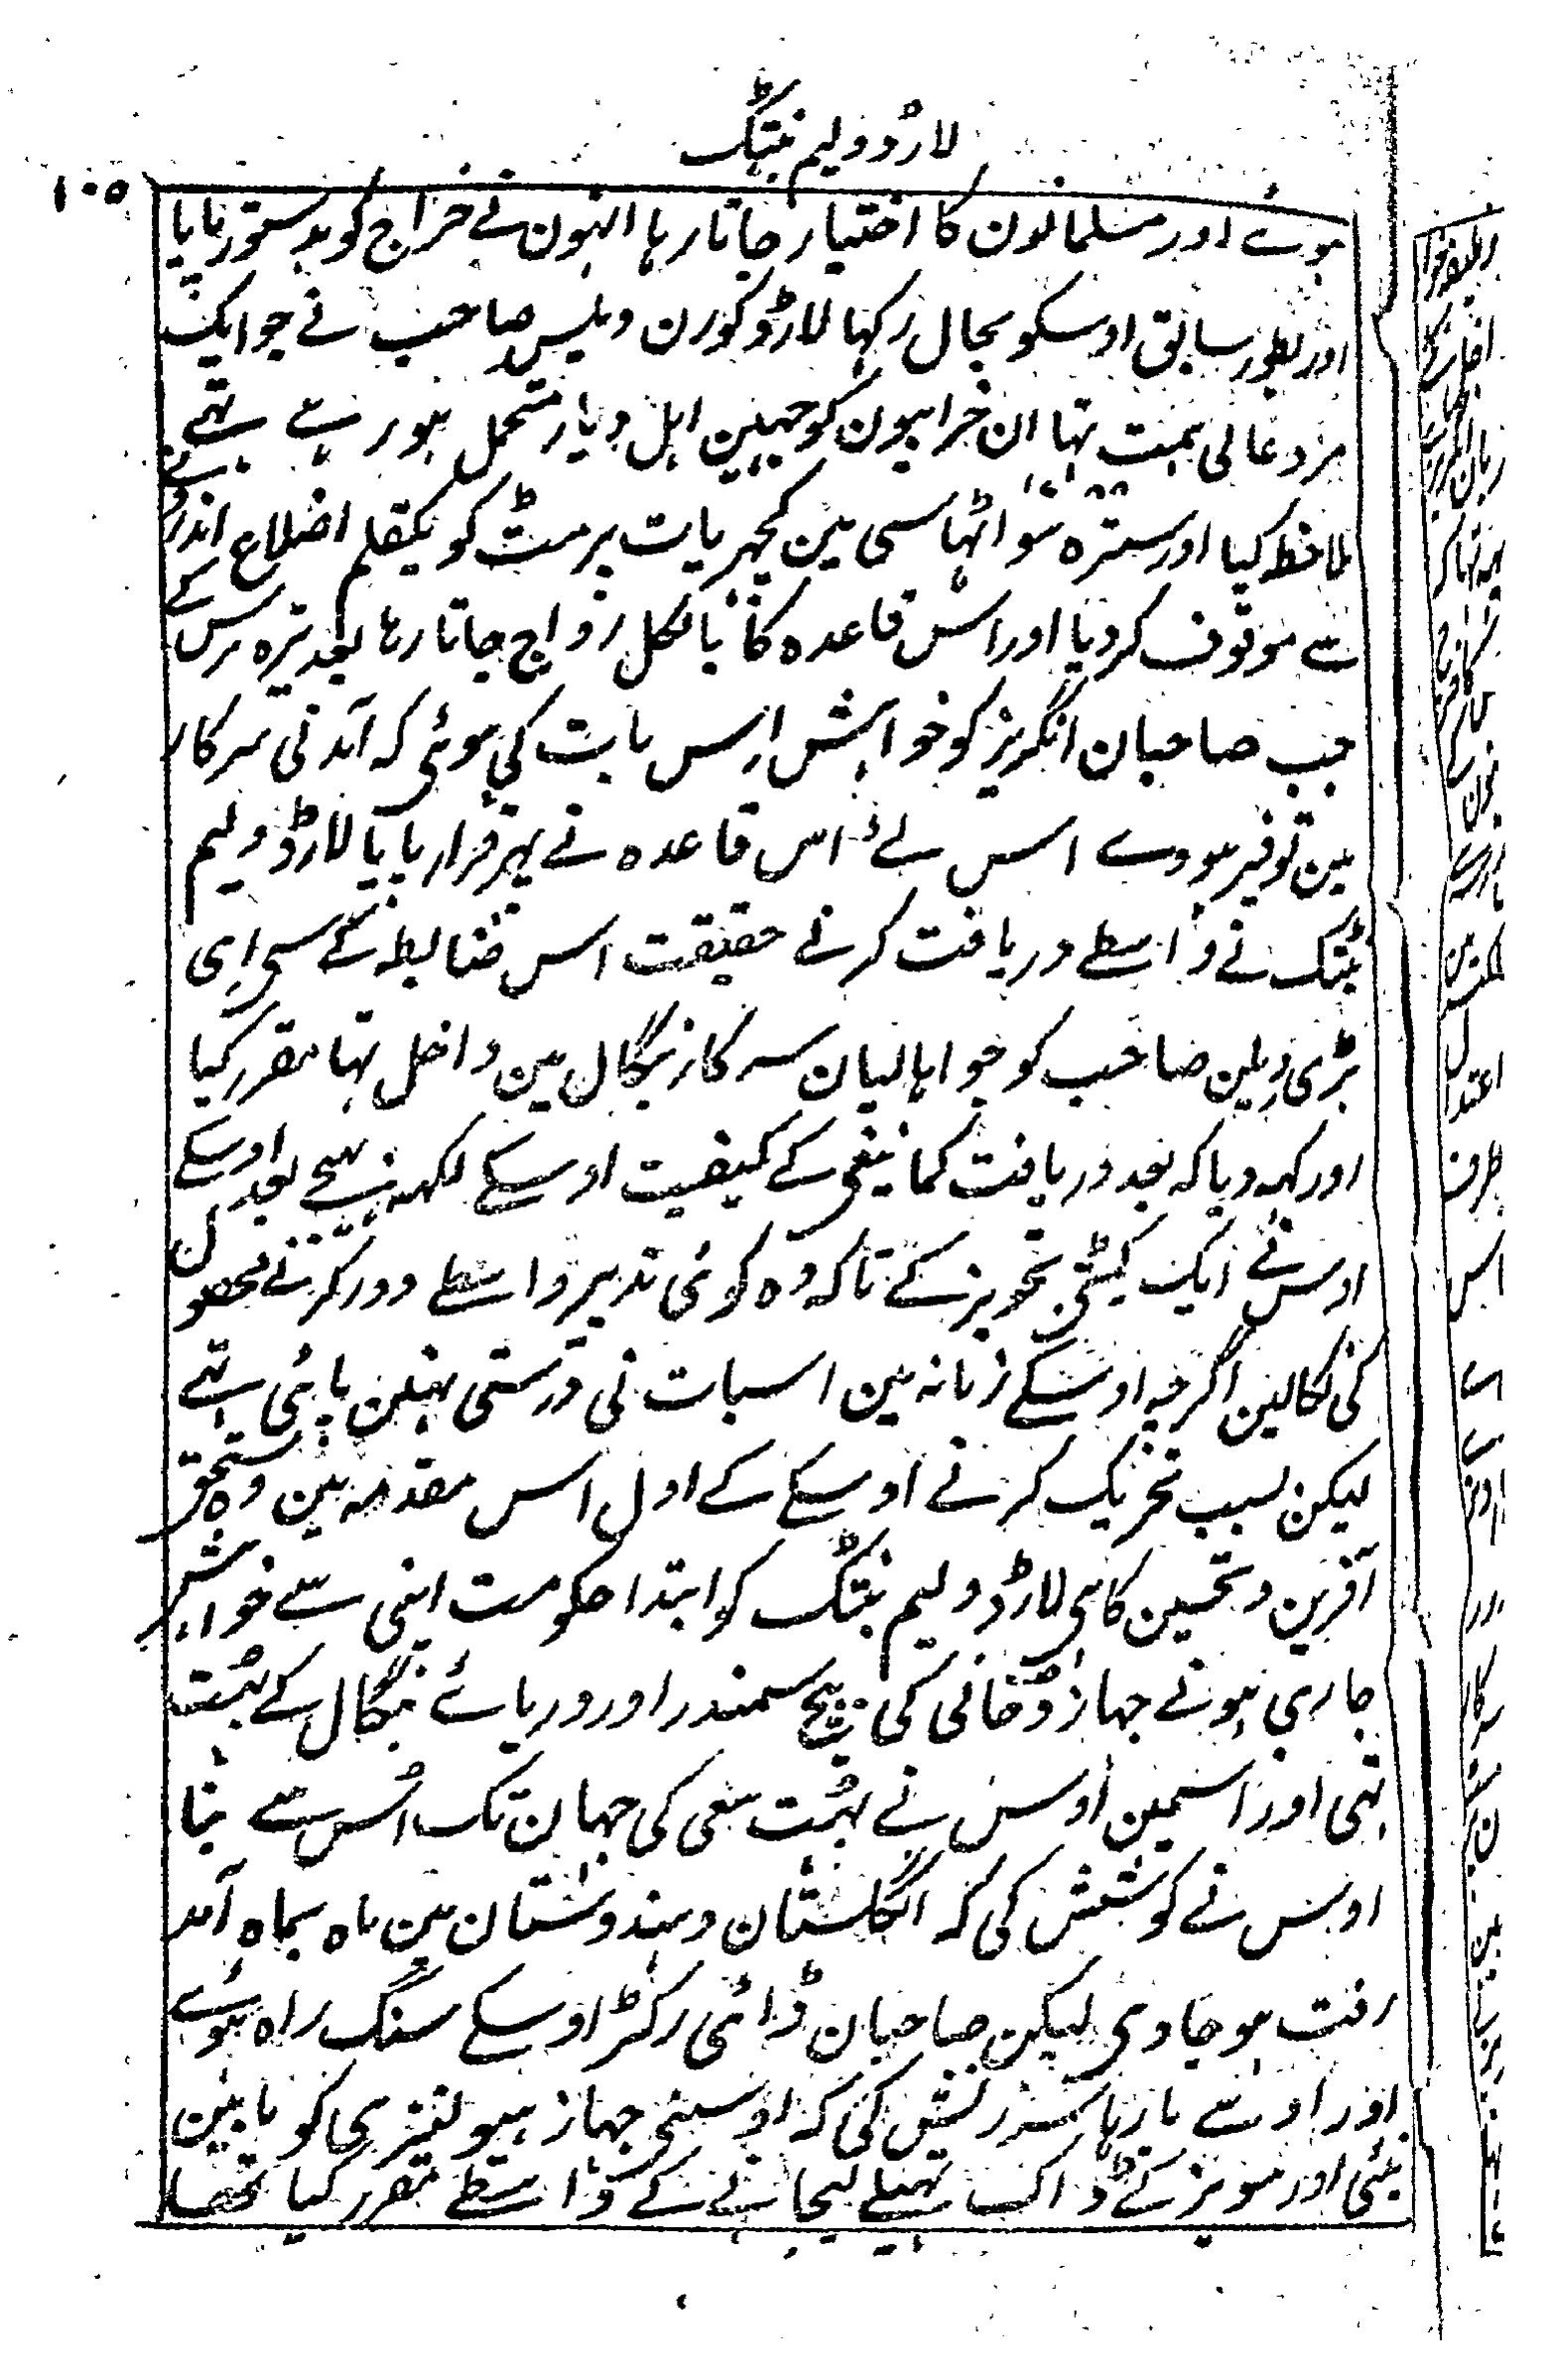 لارڈ ولیم بنٹنگ
۱۰۵
ہوئے اور مسلمانون کا اختیار جاتا رہا انہون نے خراج کو بدستور پایا
اور بطور سابق اوسکو بحال رکہا لارڈ کورن ویلس صاحب نے جو ایک
مرد عالی ہمت تہا ان خرابیون کو جہین اہل دیار متحمل ہو رہے تہے
ملاحظہ کیا اور سترہ سو اٹہاسی ۱۷۸۸ مین کچہریات پرمٹ کو یکقلم اضلاع اندرونے
سے موقوف کر دیا اور اس قاعدہ کا بالکل رواج جاتا رہا بعد تیرہ برس کے
جب صاحبان انگریز کو خواہش اِس بات کی ہوئی کہ آمدنی سرکار
مین توفیر ہووے اس لئے اس قاعدہ نے پہر قرار پایا لارڈ ولیم
بنٹنگ نے واسطے دریافت کرنے حقیقت اس ضابطہ کے سی اِی
ٹریویلین صاحب کو جو اہالیان سرکار بنگال مین داخل تہا مقرر کیا
اور کہہ دیا کہ بعد دریافت کماینبغی کے کیفیت اوسکے لکہہ بہیجے بعد اوسکے
اوس نے ایک کمیٹی تجویز کے تاکہ وہ کوئی تدبیر واسطے دور کرنے محصول
کی نکالین اگرچہ اوسکے زمانہ مین اسبات نی درستی نہین پائی تہے
لیکن بسبب تحریک کرنے اوسکے کے اول اس مقدمہ مین وہ مستحق
آفرین و تحسین کا ہی لارڈ ولیم بنٹنگ کو ابتدا حکومت اپنی سے خواہش
جاری ہونے جہاز دُخانی کی بیچ سمندر اور دریائے بنگال کے بہت
تہی اور اسمین اوس نے بہت سعی کی جہان تک اُس سے بنا
اوس نے کوشش کی کہ انگلستان و ہندوستان مین ماہ بماہ آمد
رفت ہو جاوی لیکن صاحبان ڈائی رکٹر اوسکے سنگ راہ ہوئے
اور اوسے بارہا سرزنش کی کہ اوسنی جہاز ہیو لنڈزی کو مابین
بنبئی اور سویز کے ڈاک تہیلے لیجانے کے واسطے مقرر کیا تھا